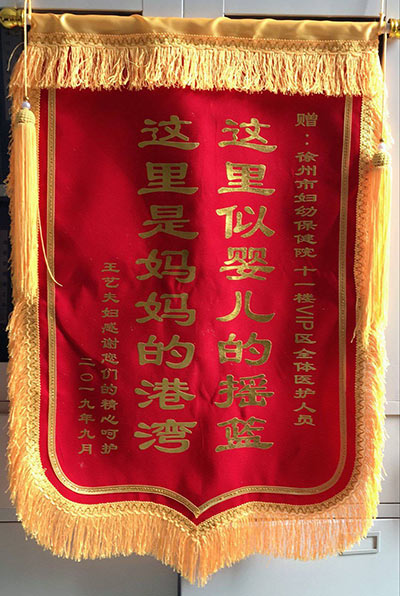 赠：徐州市妇幼保健院 十一楼VIP区全体医护人员
这里似婴儿的摇篮
这里是妈妈的港湾
王艺夫妇感谢您们的精心呵护
二〇一九年九月